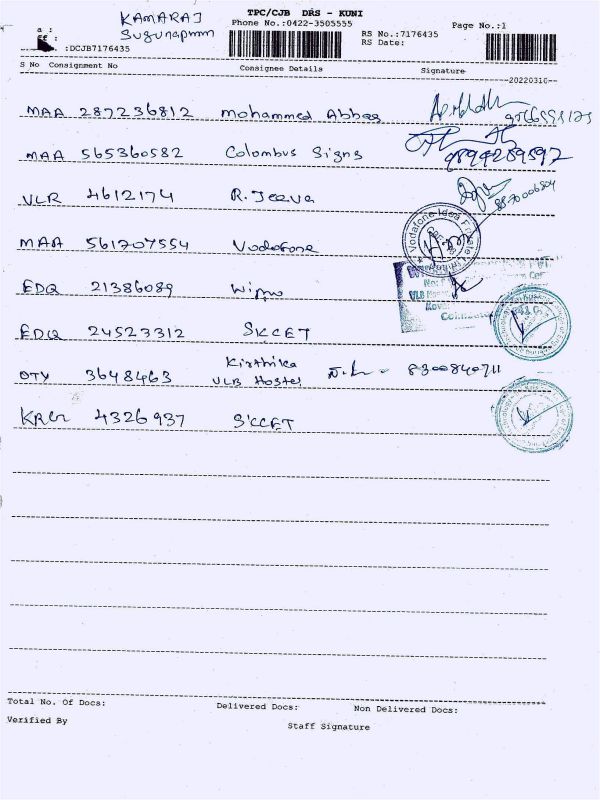 KAMARAJ
Sugunapuram
TPC/CJB DRS - KUNI
Phone No.:0422-3505555
Page No.:1
RS No.:7176435
RS Date:
:DCJB7176435
S No Consignment No Consignee Details Signature
20220310
MAA 287236812 Mohammed Abbas
MAA 565360582 Colombus Signs 9894289597
VLR 4612174 R. Jeeva 8870006804
MAA 561707554 Vodafone
Vodafone Idea
EDQ 21386089 Wipro
EDQ 24523312 SKCET
Kirthika
OTY 3648463 VLB Hostel 8300840711
KRGR 4326937 SKCET
Total No. Of Docs: Delivered Docs: Non Delivered Docs:
Verified By
Staff Signature